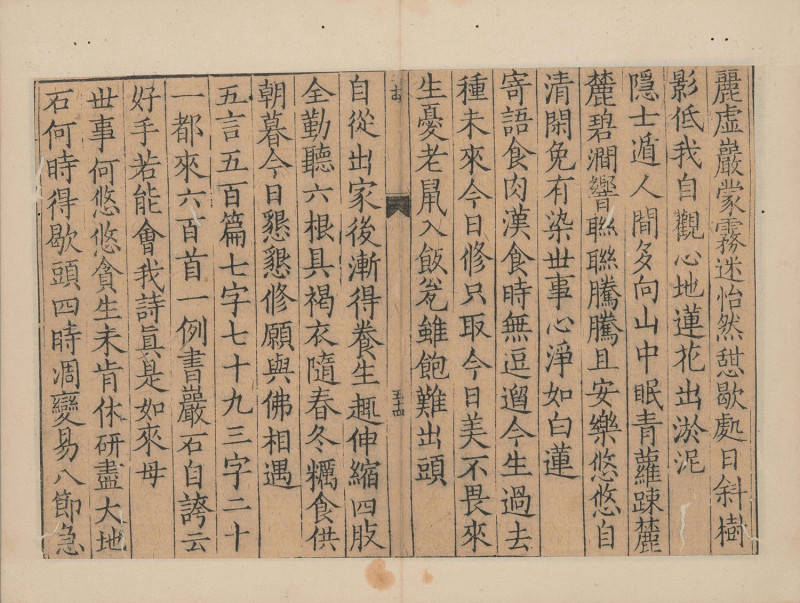 麗虛巖蒙霧迷怡然憇歇處日斜樹
影低我自觀心地蓮花出淤泥
隱士遁人間多向山中眠青蘿踈麓
麓碧澗響聮聮騰騰且安樂悠悠自
清閑免有染世事心淨如白蓮
寄語食肉漢食時無逗遛今生過去
種未來今日修只取今日美不畏來
生憂老鼠入飯瓮雖飽難出頭
自從出家後漸得養生趣伸縮四肢
全勤聽六根具褐衣隨春冬糲食供
朝暮今日懇懇修願與佛相遇
五言五百篇七字七十九三字二十
一都來六百首一例書巖石自誇云
好手若能會我詩眞是如來母
世事何悠悠貪生未肯休研盡大地
石何時得歇頭四時凋變易八節急